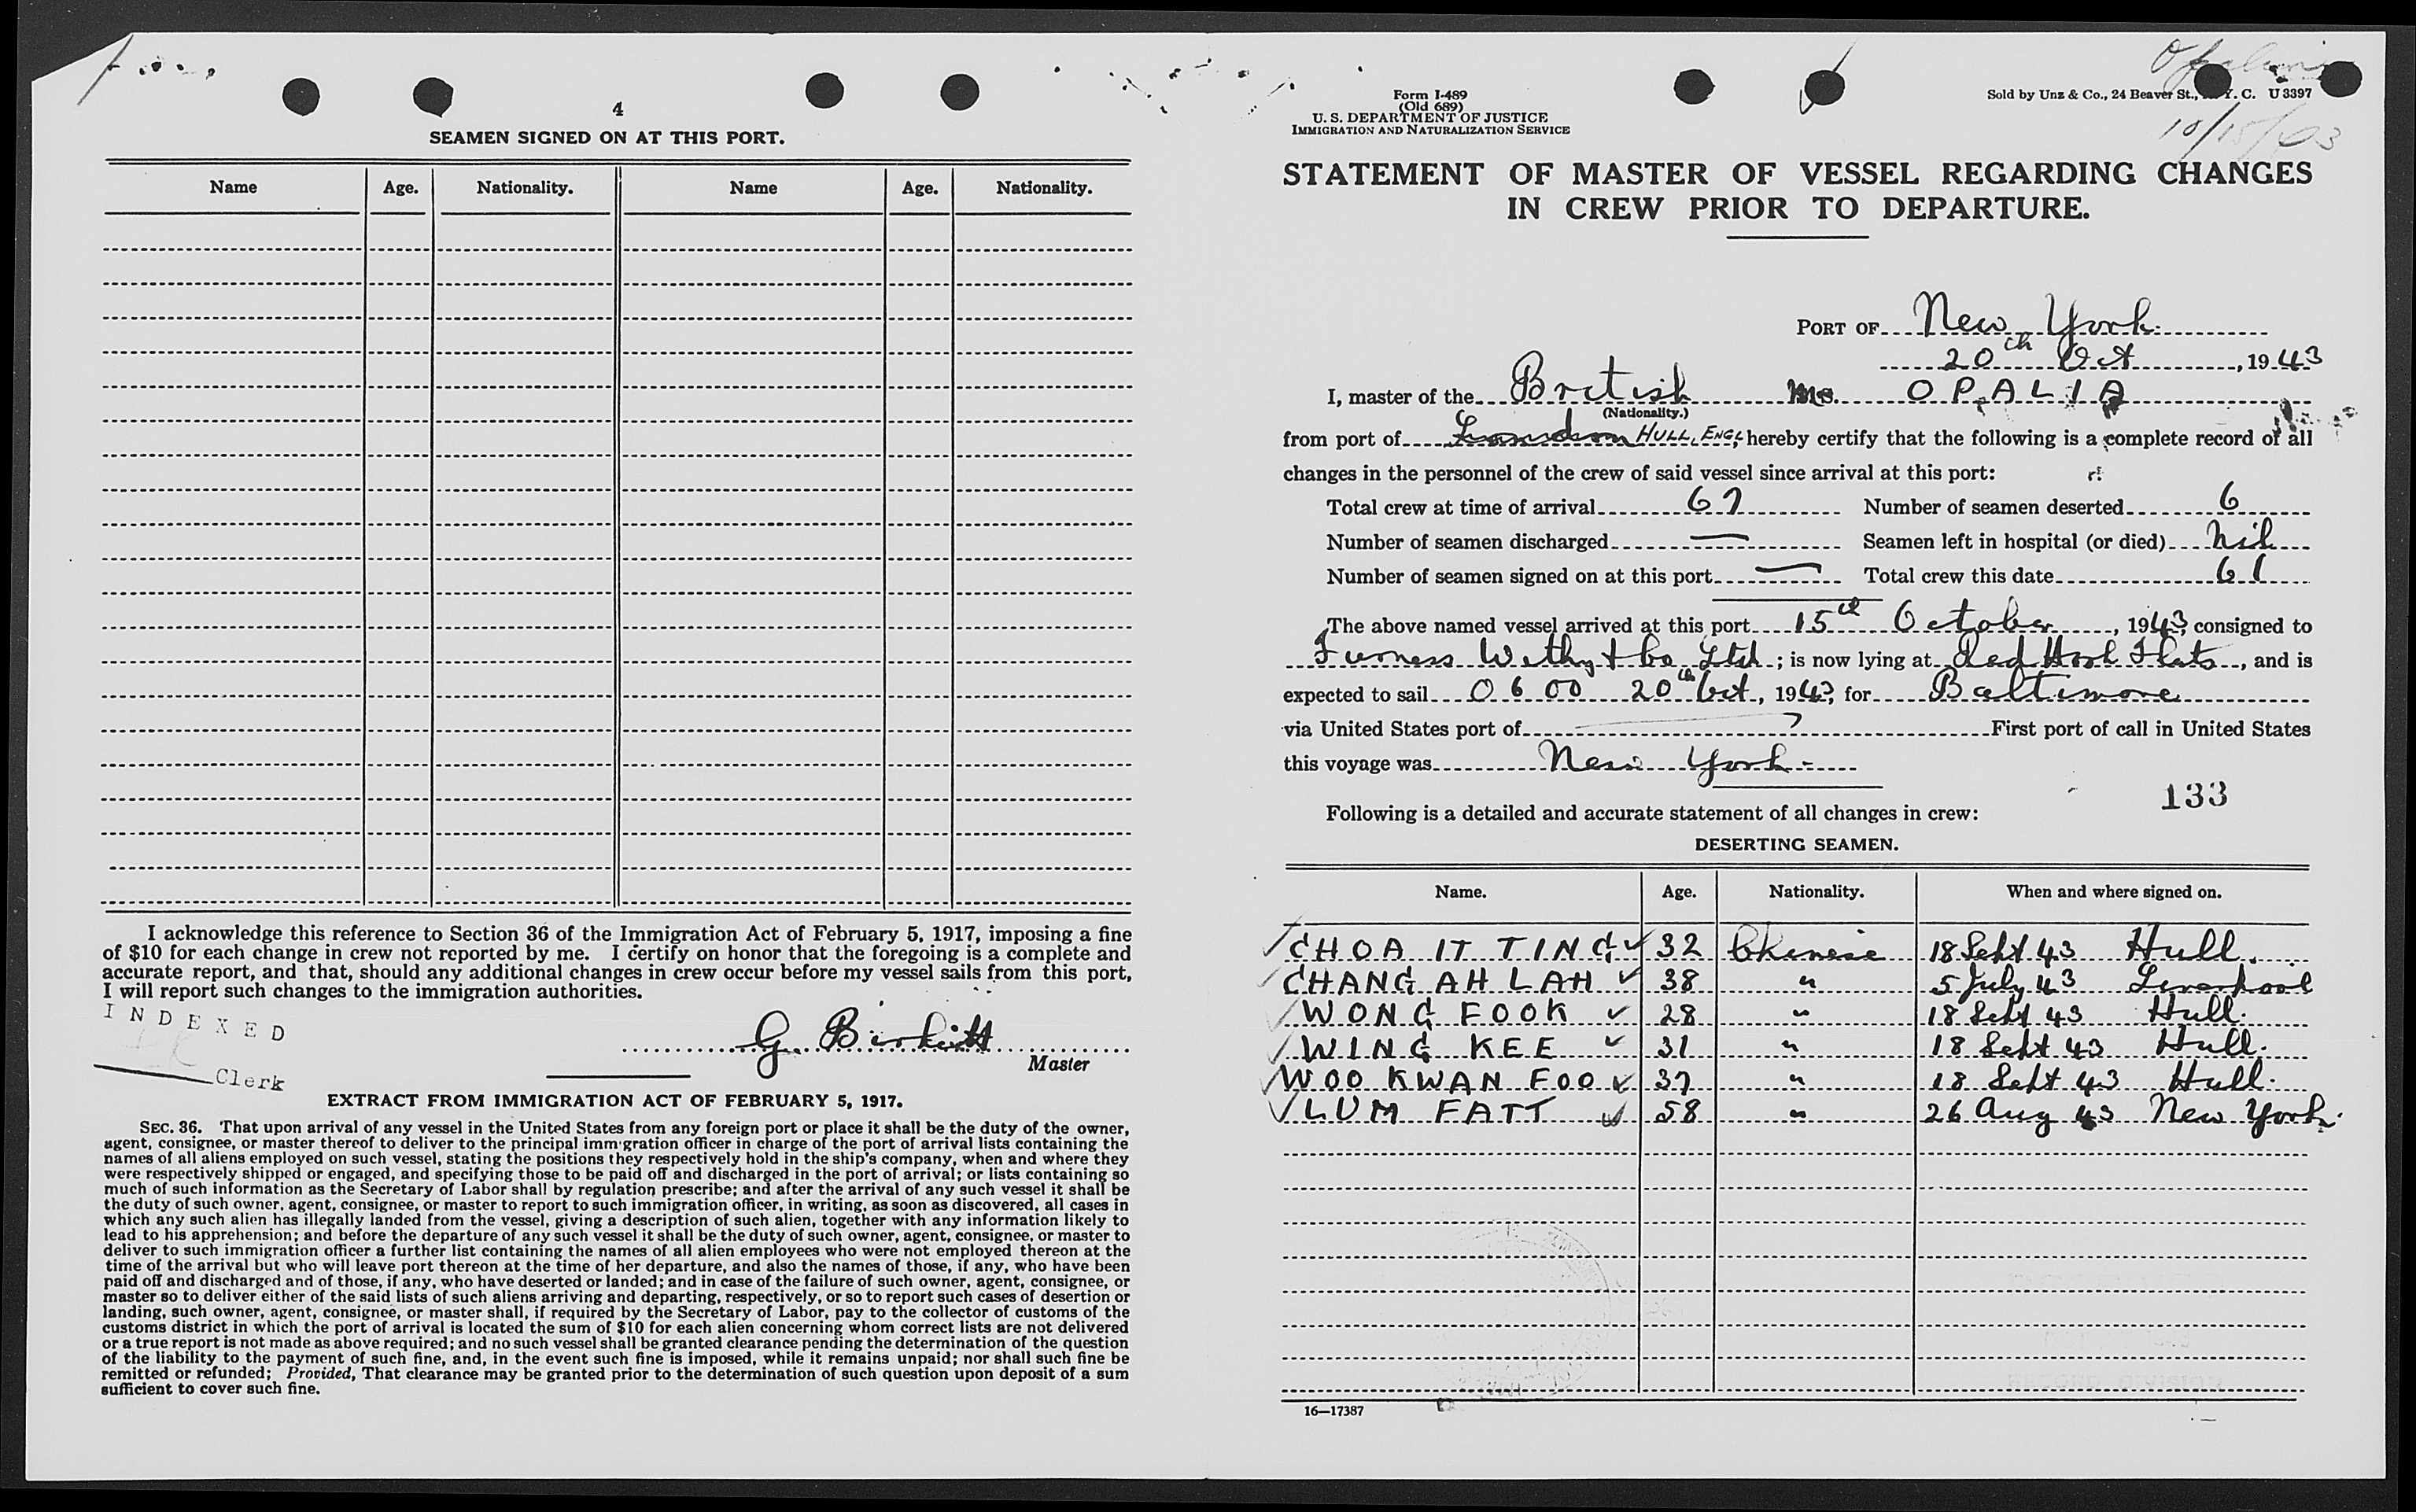 4
SEAMEN SIGNED ON AT THIS PORT.
Name Age. Nationality. Name Age. Nationality.
I acknowledge this reference to Section 36 of the Immigration Act of February 5, 1917, imposing a fine
of $10 for each change in crew not reported by me. I certify on honor that the foregoing is a complete and
accurate report, and that, should any additional changes in crew occur before my vessel sails from this port,
I will report such changes to the immigration authorities.
INDEXED
Clerk
G. Birkitt
Master
EXTRACT FROM IMMIGRATION ACT OF FEBRUARY 5, 1917.
SEC. 36. That upon arrival of any vessel in the United States from any foreign port or place it shall be the duty of the owner,
agent, consignee, or master thereof to deliver to the principal immigration officer in charge of the port of arrival lists containing the
names of all aliens employed on such vessel, stating the positions they respectively hold in the ship's company, when and where they
were respectively shipped or engaged, and specifying those to be paid off and discharged in the port of arrival; or lists containing so
much of such information as the Secretary of Labor shall by regulation prescribe; and after the arrival of any such vessel it shall be
the duty of such owner, agent, consignee, or master to report to such immigration officer, in writing, as soon as discovered, all cases in
which any such alien has illegally landed from the vessel, giving a description of such alien, together with any information likely to
lead to his apprehension; and before the departure of any such vessel it shall be the duty of such owner, agent, consignee, or master to
deliver to such immigration officer a further list containing the names of all alien employees who were not employed thereon at the
time of the arrival but who will leave port thereon at the time of her departure, and also the names of those, if any, who have been
paid off and discharged and of those, if any, who have deserted or landed; and in case of the failure of such owner, agent, consignee, or
master so to deliver either of the said lists of such aliens arriving and departing, respectively, or so to report such cases of desertion or
landing, such owner, agent, consignee, or master shall, if required by the Secretary of Labor, pay to the collector of customs of the
customs district in which the port of arrival is located the sum of $10 for each alien concerning whom correct lists are not delivered
or a true report is not made as above required; and no such vessel shall be granted clearance pending the determination of the question
of the liability to the payment of such fine, and, in the event such fine is imposed, while it remains unpaid; nor shall such fine be
remitted or refunded; Provided, That clearance may be granted prior to the determination of such question upon deposit of a sum
sufficient to cover such fine.
Form I-489
(Old 689)
U. S. DEPARTMENT OF JUSTICE
IMMIGRATION AND NATURALIZATION SERVICE
Sold by Unz & Co., 24 Beaver St., Y. C. U 3397
STATEMENT OF MASTER OF VESSEL REGARDING CHANGES
IN CREW PRIOR TO DEPARTURE.
PORT OF New York
20th Oct, 1943
I, master of the British Ms. OPALIA
(Nationality.)
from port of London HULL, ENGL hereby certify that the following is a complete record of all
changes in the personnel of the crew of said vessel since arrival at this port:
Total crew at time of arrival 67 Number of seamen deserted 6
Number of seamen discharged — Seamen left in hospital (or died) Nil
Number of seamen signed on at this port — Total crew this date 61
The above named vessel arrived at this port 15th October, 1943, consigned to
Furness Withy & Co Ltd; is now lying at Red Hook Flats, and is
expected to sail 0600 20th Oct, 1943, for Baltimore
via United States port of First port of call in United States
this voyage was New York
133
Following is a detailed and accurate statement of all changes in crew:
DESERTING SEAMEN.
Name. Age. Nationality. When and where signed on.
CHOA IT TING 32 Chinese 18 Sept 43 Hull.
CHANG AH LAH 38 " 5 July 43 Liverpool
WONG FOOK 28 " 18 Sept 43 Hull.
WING KEE 31 " 18 Sept 43 Hull.
WOO KWAN FOO 37 " 18 Sept 43 Hull.
LUM FATT 58 " 26 Aug 43 New York.
16—17387